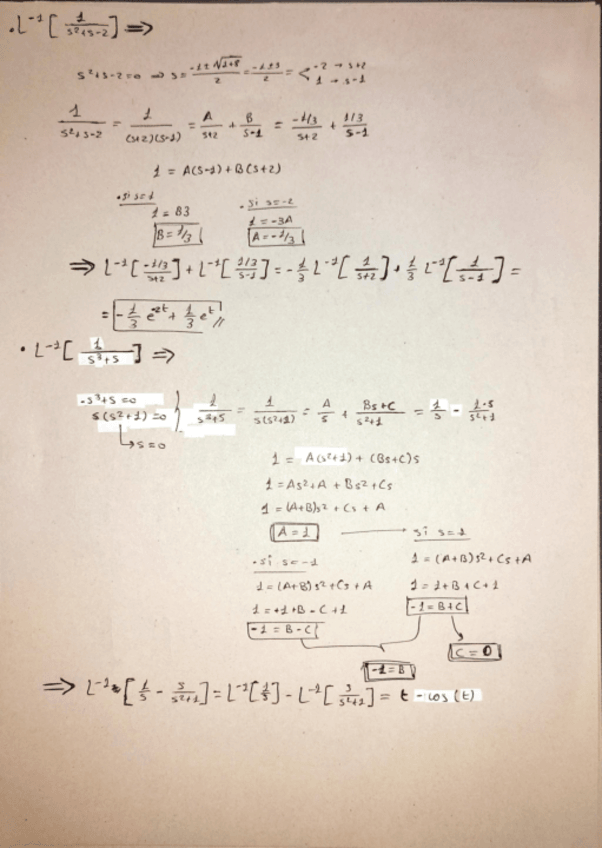 . L⁻¹[1/(s²+s-2)] ⇒
s²+s-2=0 ⇒ s = (-1±√(1+8))/2 = (-1±3)/2 = < -2 → s+2
1 → s-1
1/(s²+s-2) = 1/((s+2)(s-1)) = A/(s+2) + B/(s-1) = (-1/3)/(s+2) + (1/3)/(s-1)
1 = A(s-1) + B(s+2)
· si s=1
1 = B3
B = 1/3
· si s=-2
1 = -3A
A = -1/3
⇒ L⁻¹[(-1/3)/(s+2)] + L⁻¹[(1/3)/(s-1)] = -1/3 L⁻¹[1/(s+2)] + 1/3 L⁻¹[1/(s-1)] =
= -1/3 e⁻²ᵗ + 1/3 eᵗ //
· L⁻¹[1/(s³+s)] ⇒
·s³+s=0
s(s²+1)=0
↳ s=0
1/(s³+s) = 1/(s(s²+1)) = A/s + (Bs+C)/(s²+1) = 1/s - (1·s)/(s²+1)
1 = A(s²+1) + (Bs+C)s
1 = As²+A + Bs²+Cs
1 = (A+B)s² + Cs + A
A = 1 → si s=1
1 = (A+B)s²+Cs+A
1 = 1+B+C+1
-1 = B+C
· si s=-1
1 = (A+B)s²+Cs+A
1 = +1+B-C+1
-1 = B-C
C = 0
-1 = B
⇒ L⁻¹[1/s - s/(s²+1)] = L⁻¹[1/s] - L⁻¹[s/(s²+1)] = t - cos(t)